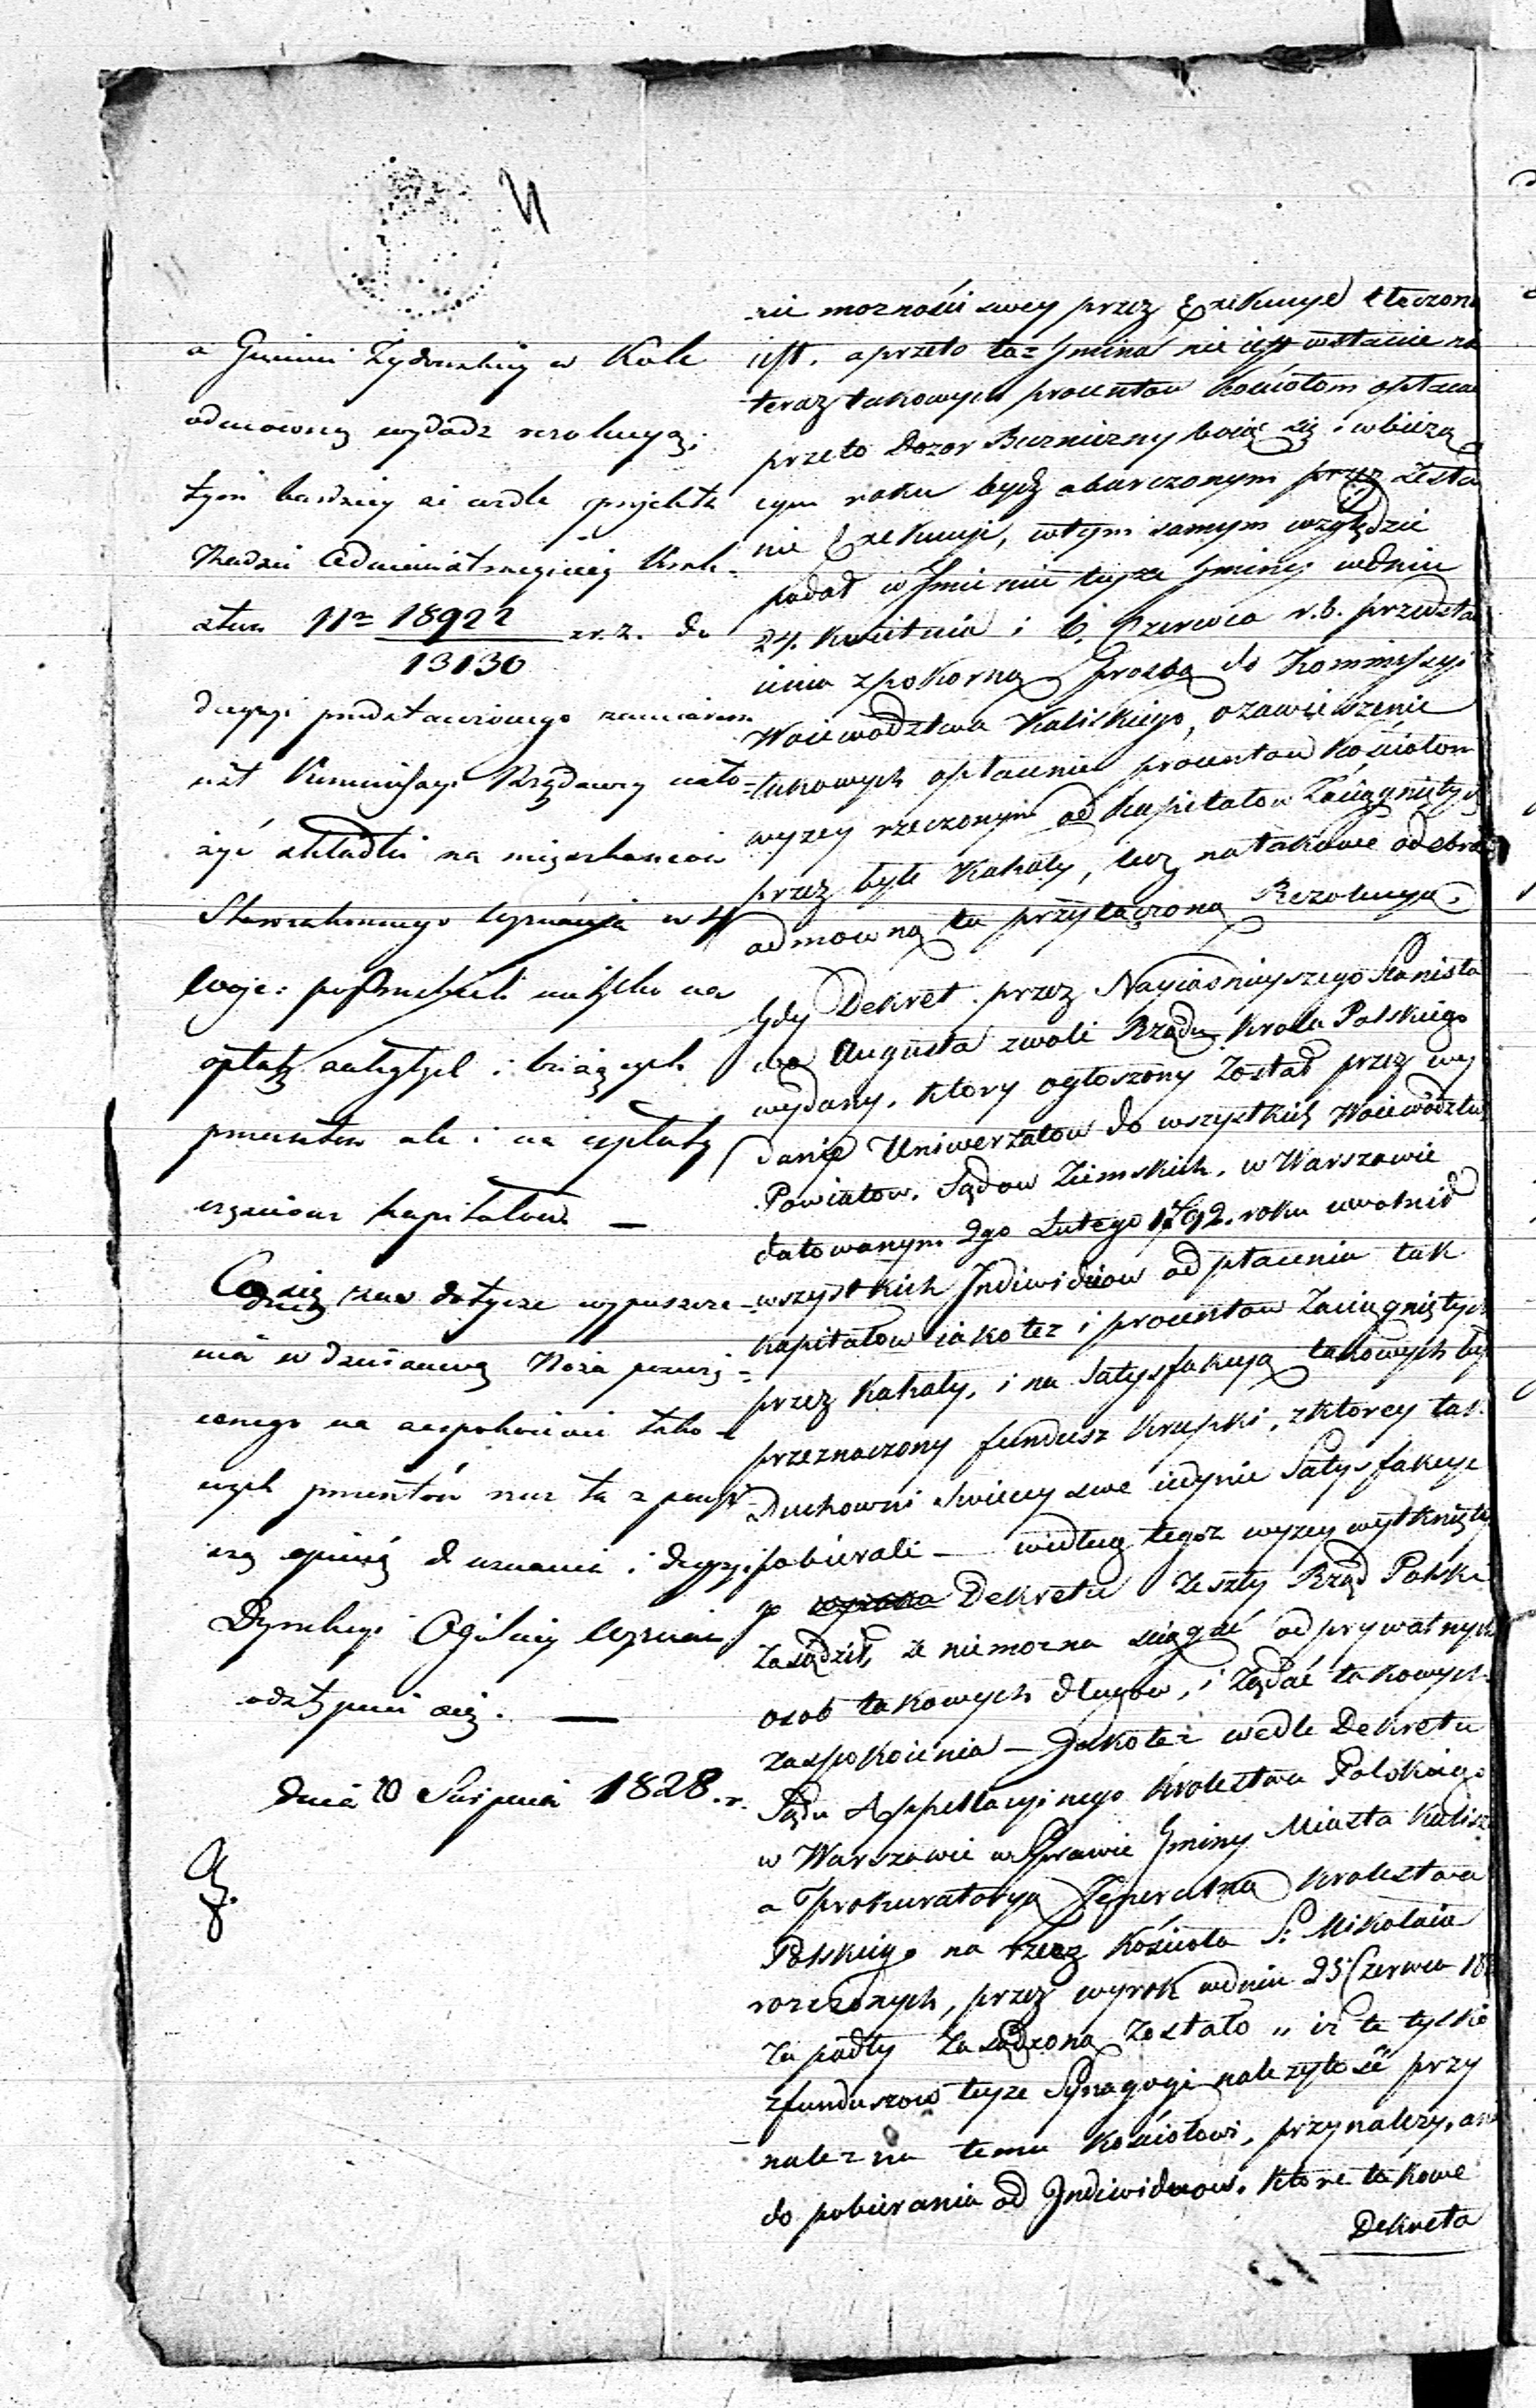 a Gminie Żydowskiej w Kole
odmowną wydadz rezolucyą;
tym bardziej że wedle projektu
Rządzie Administracyiney Król:
stwa Nro 18922/13130 z. r. z. do
decyzyi przedstawionego zamiarem
iest Kommissyi Rządowey nało-
żyć składki na mieszkańców
Starozakonnego wyznania w 4
Woje: nietylko na
opłatę zaległych i bieżących
procentów ale i na wypłatę
kapitałów —
Co się zaś dotycze wypuszcze-
nia w dzierżawę
na zaspokoienie tako-
wych procentów
opinią do uznania i decyzyi
Dyrekcyi Ogólney
odstąpić się. —
dnia 10 Sierpnia 1828. r.
nie możności swey przez Exekucye tłaczona
iest. a przeto taż Gmina nie iest wstanie na
teraz takowych procentow Kościołom opłacać
przeto Dozor Bużniczny boiąc się i wbieżą
cym roku bydź obarczonym przez Zesła
nie Exekucyi, wtym samym względzie
podał w Jmieniu teyże Gminy wdniu
24. Kwietnia i 6. Czerwca r. b. przedsta
ienia zpokorną Prozbą do Kommissyi
Woiewodztwa Kaliskiego, ozawieszenie
takowych opłacenia procentow Kościołom
wyżey rzeczonym od Kapitałow Zaciągniętych
przez byłe Kahały, lecz natakowe odebra
odmowną tu przyłączoną Rezolucyą.
Gdy Dekret przez Nayiaśnieyszego Stanisła
wa Augusta zwoli Rządu Krola Polskiego
wydany, ktory ogłoszony Został przez wy
danie Uniwerzałow do wszystkich Woiewodztw
Powiatow. Sądow Ziemskich, w Warszawie
datowanym 2go Lutego 1792. roku uwolnił
wszystkich Jndiwiduow od płacenia tak
Kapitałow iako też i procentow Zaciągniętych
przez Kahały, i na Satysfakcyą takowych był
przeznaczony fundusz Krupki, zktorey tak
Duchowni Swieccy swe iedynie Satysfakcye
pobierali — według tegoż wyżey wytknięte
go Dekretu Zeszły Rząd Polski
Zasądził, że niemożna sciągać odprywatnych
osob takowych długow, i Żądać takowych
zaspokoienia — Jakoteż wedle Dekretu
Sądu Appellacyinego Krolestwa Polskiego
w Warszawie w Sprawie Gminy Miasta Kalisza
a Prokuratoryą Jeneralną Krolestwa
Polskiego na rzecz Kościoła S: Mikołaia
rozczonych, przez wyrok wdniu 25 Czerwca 18
Zapadły Zasądzoną Zostało „ iż ta tylko
zfunduszow teyże Synagogi należytość przy
należna temu Kościołowi, przynależy, ani
do pobierania od Jndiwiduow, które takowe
Dekreta